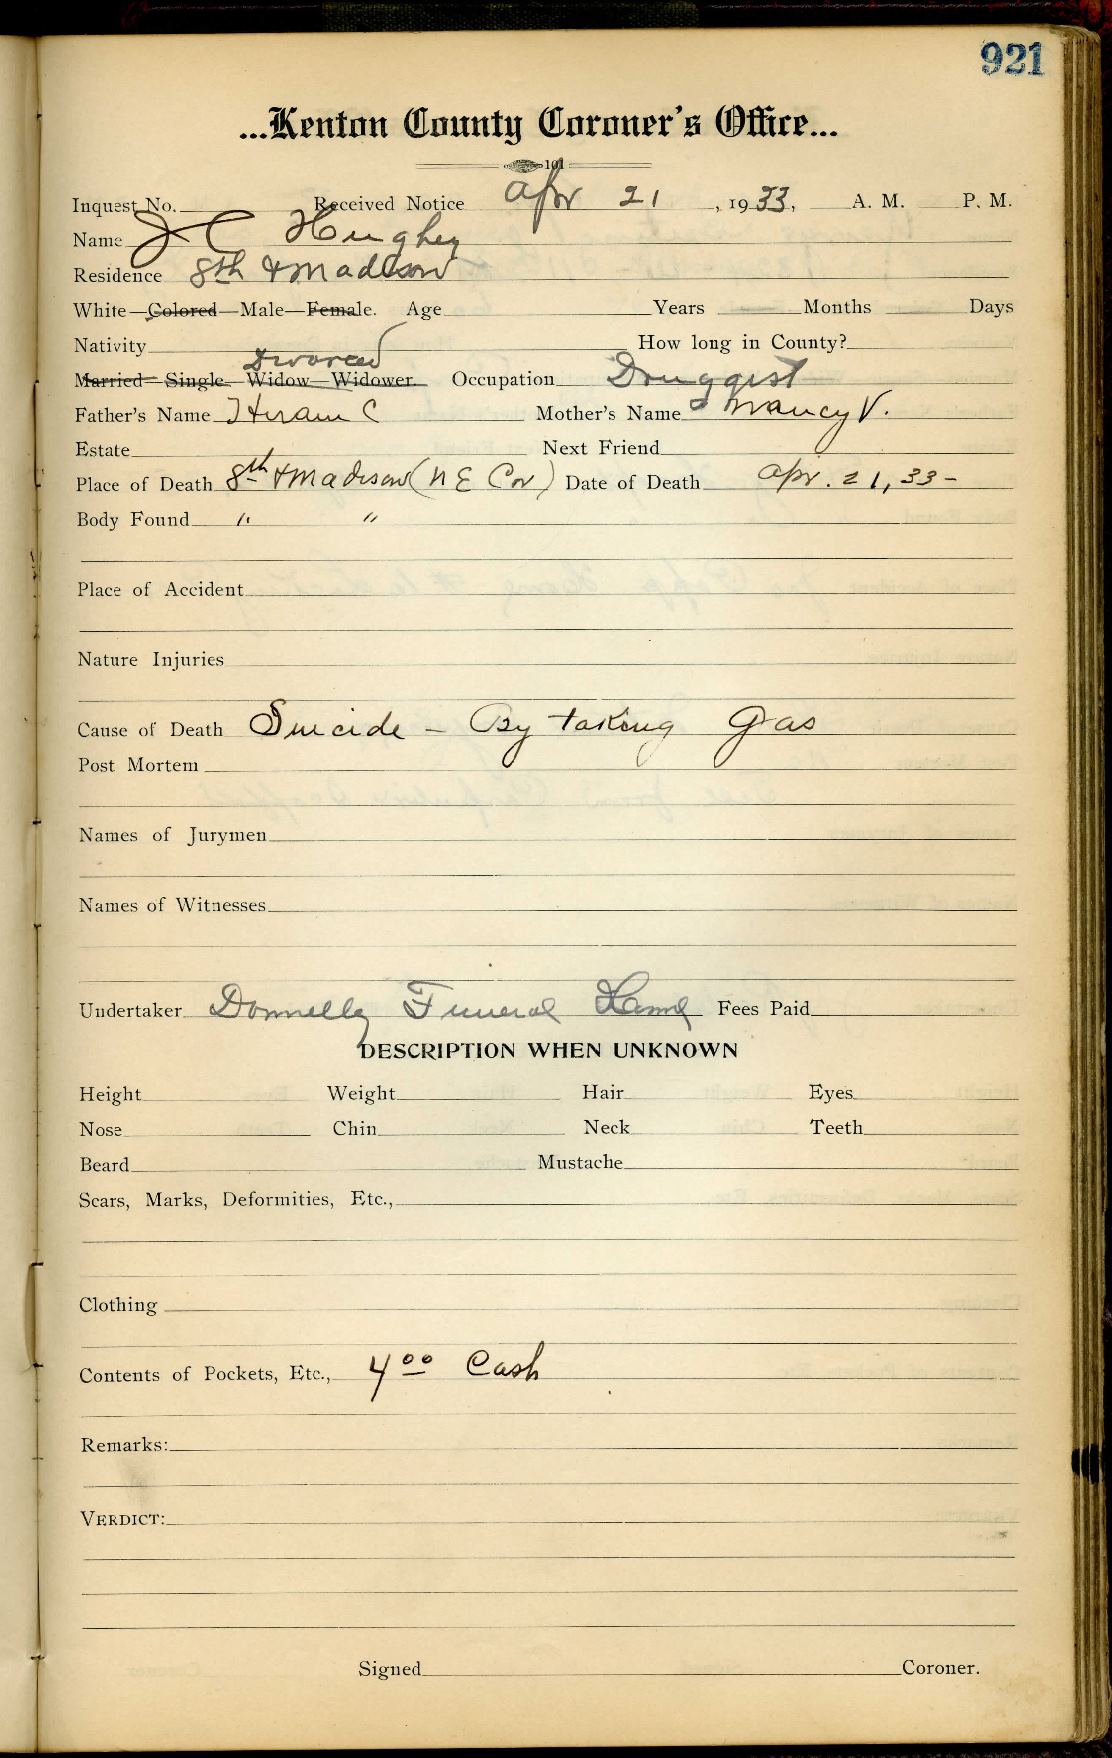 921
...Kenton County Coroner's Office...
101
Inquest No. Received Notice Apr 21, 1933, A. M. P. M.
Name J C Hughey
Residence 8th & Madison
White—Colored—Male—Female. Age Years Months Days
Nativity How long in County?
Divorced
Married—Single—Widow—Widower. Occupation Druggist
Father's Name Hiram C Mother's Name Nancy V.
Estate Next Friend
Place of Death 8th & Madison (N E Cor) Date of Death Apr. 21, 33-
Body Found " "
Place of Accident
Nature Injuries
Cause of Death Suicide - By taking Gas
Post Mortem
Names of Jurymen
Names of Witnesses
Undertaker Donnelly Funeral Home Fees Paid
DESCRIPTION WHEN UNKNOWN
Height Weight Hair Eyes
Nose Chin Neck Teeth
Beard Mustache
Scars, Marks, Deformities, Etc.,
Clothing
Contents of Pockets, Etc., 400 Cash
Remarks:
VERDICT:
Signed Coroner.